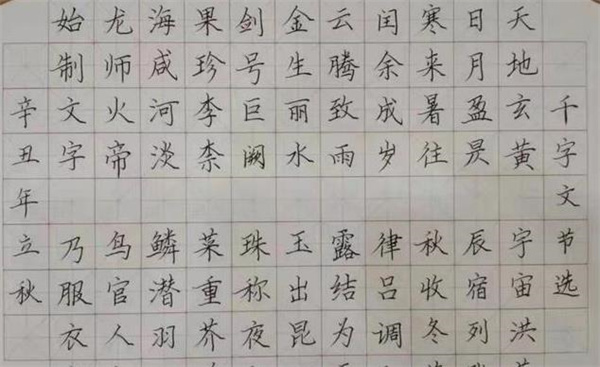 千字文节选
天地玄黄 宇宙洪
日月盈昃 辰宿列
寒来暑往 秋收冬
闰余成岁 律吕调
云腾致雨 露结为
金生丽水 玉出昆
剑号巨阙 珠称夜
果珍李柰 菜重芥
海咸河淡 鳞潜羽
龙师火帝 鸟官人
始制文字 乃服衣
辛丑年立秋